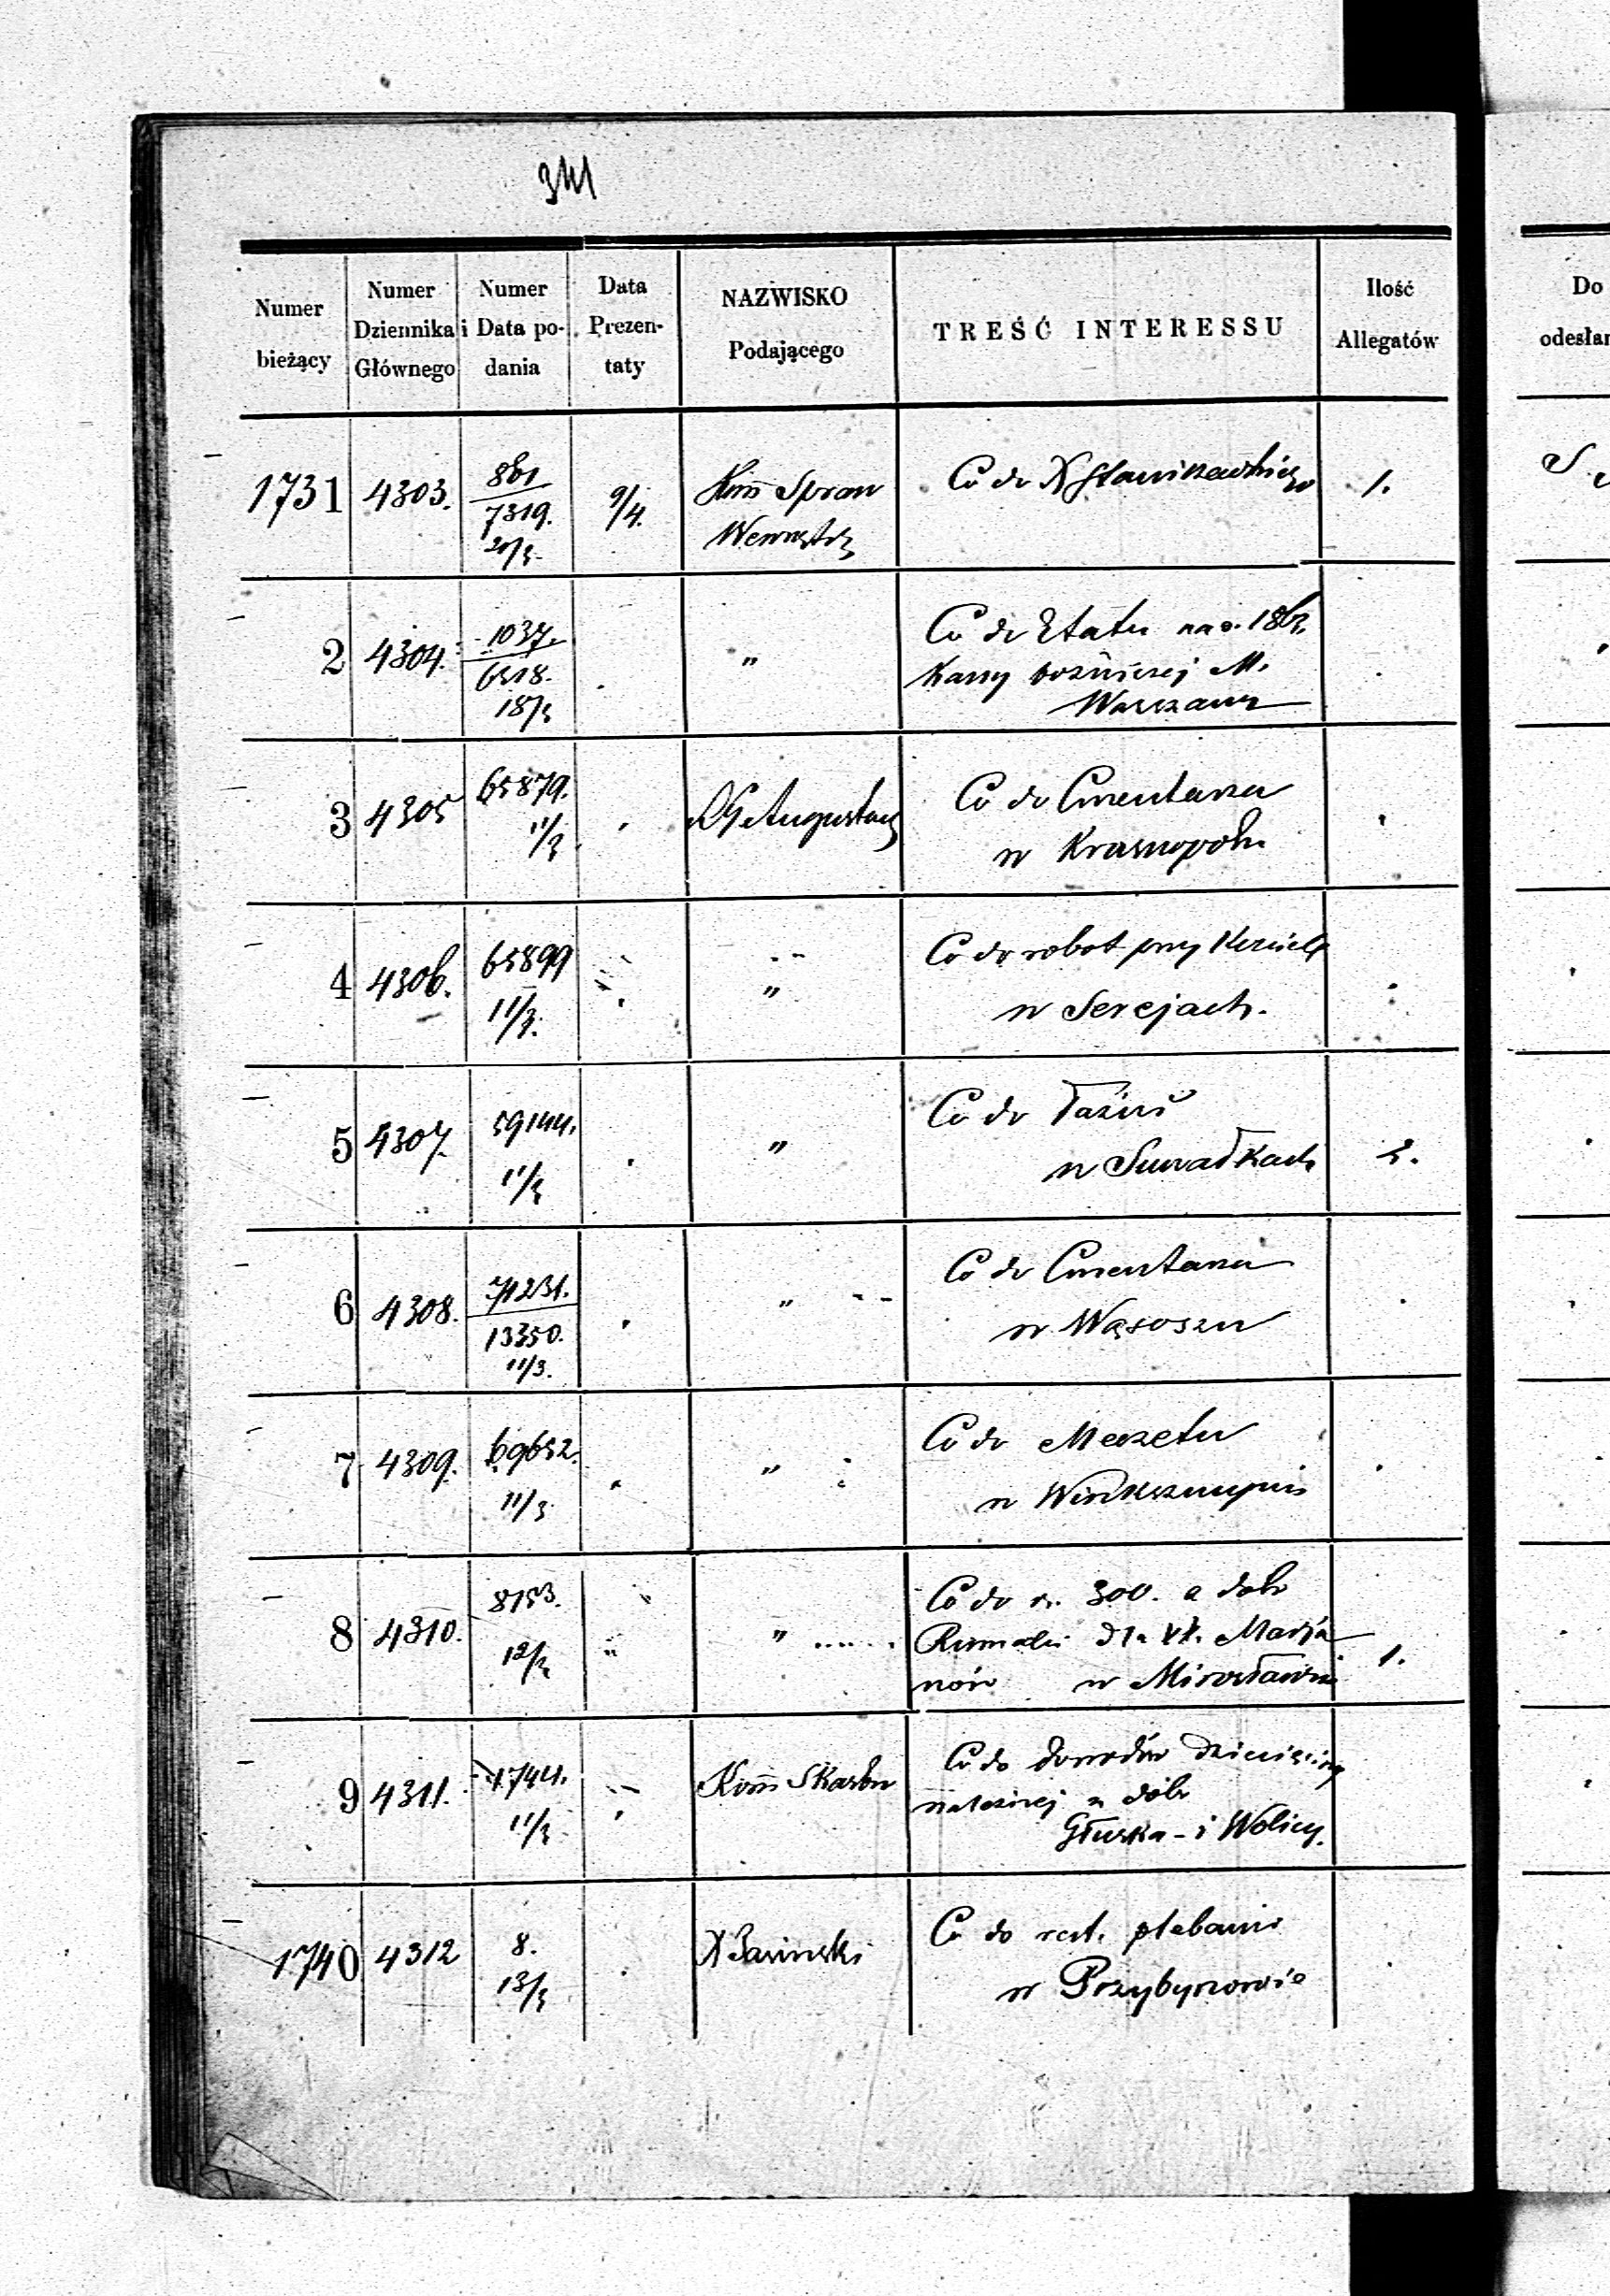 341
Numer bieżący
Numer Dziennika Głównego
Numer i Data podania
Data Prezentaty
NAZWISKO Podającego
TREŚĆ INTERESSU
Ilość Allegatów
Do
odesłan
1731 4303. 861 9/4. Spraw Co do X 1.
7319. Wewnętrz
2 4304. 1037. " Co do Etatu na r.
6318. Kassy bóżniczej M.
18/3 Warszawy
3 4305 65879. Co do Cmentarza
11/3 w Krasnopolu
4 4306. 65899 " Co do robot przy Kościele
11/3. w Serejach.
5 4307. 59144. " Co do Łaźni
11/3 w Suwałkach 2.
6 4308. 71231. " Co do Cmentarza
13350. w Wąsoszu
11/3.
7 4309. 69652. " Co do Meczetu
11/3 w
8 4310. 8153. " Co do rs. 300. z dóbr
12/3 dla XX. Marja
nów w Mirosławiu 1.
9 4311. 1744. Kom Skarbu Co do dowodów dziesięciny
11/3 należnej z dóbr
Głuska - i Wolicy.
1740 4312 8. X Co do rest. plebanii
13/3 w Przybynowie